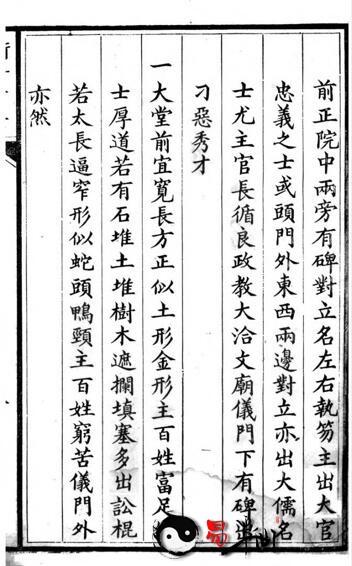 前正院中兩旁有碑對立名左右執笏主出大官
忠義之士或頭門外東西兩邊對立亦出大儒名
士尤主官長循良政教大洽文廟儀門下有碑
刁惡秀才
一大堂前宜寬長方正似土形金形主百姓富足
士厚道若有石堆土堆樹木遮攔填塞多出訟棍
若太長逼窄形似蛇頭鴨頸主百姓窮苦儀門外
亦然
易